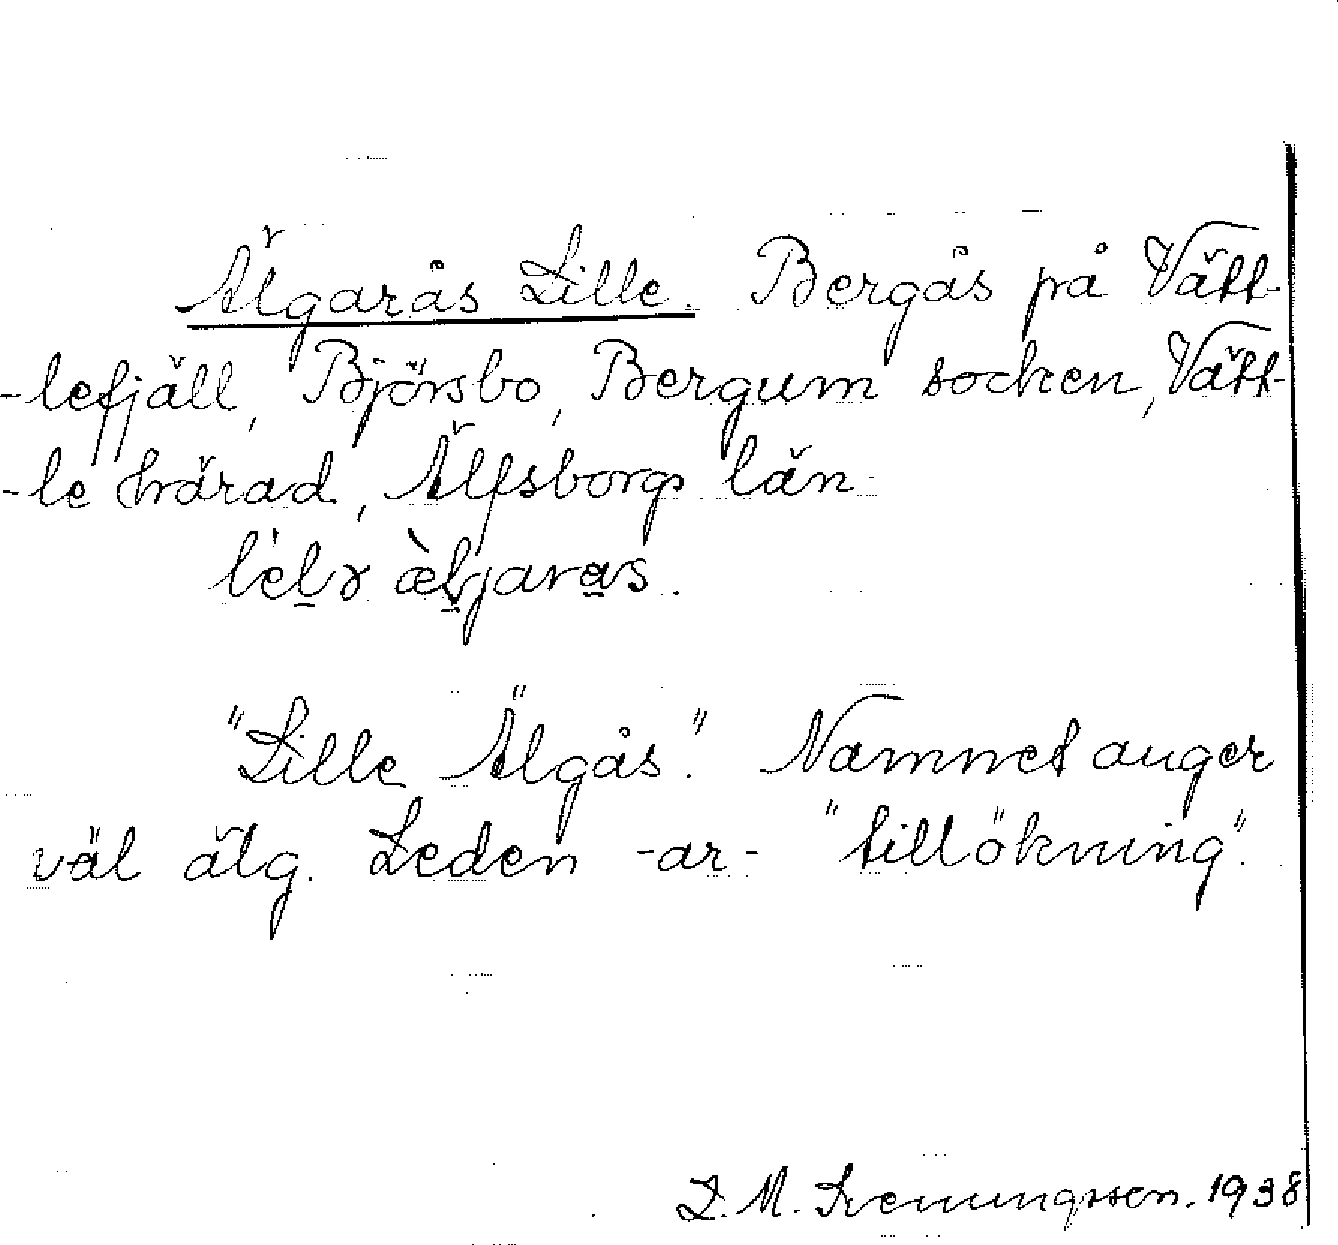 Älgarås Lille. Bergås på Vätt-
-lefjäll, Björsbo, Bergum socken, Vätt-
-le härad, Älfsborgs län
"Lille Älgås". Namnet anger
väl älg. Leden -ar- "tillökning".
D. M. Svenungsson. 1938